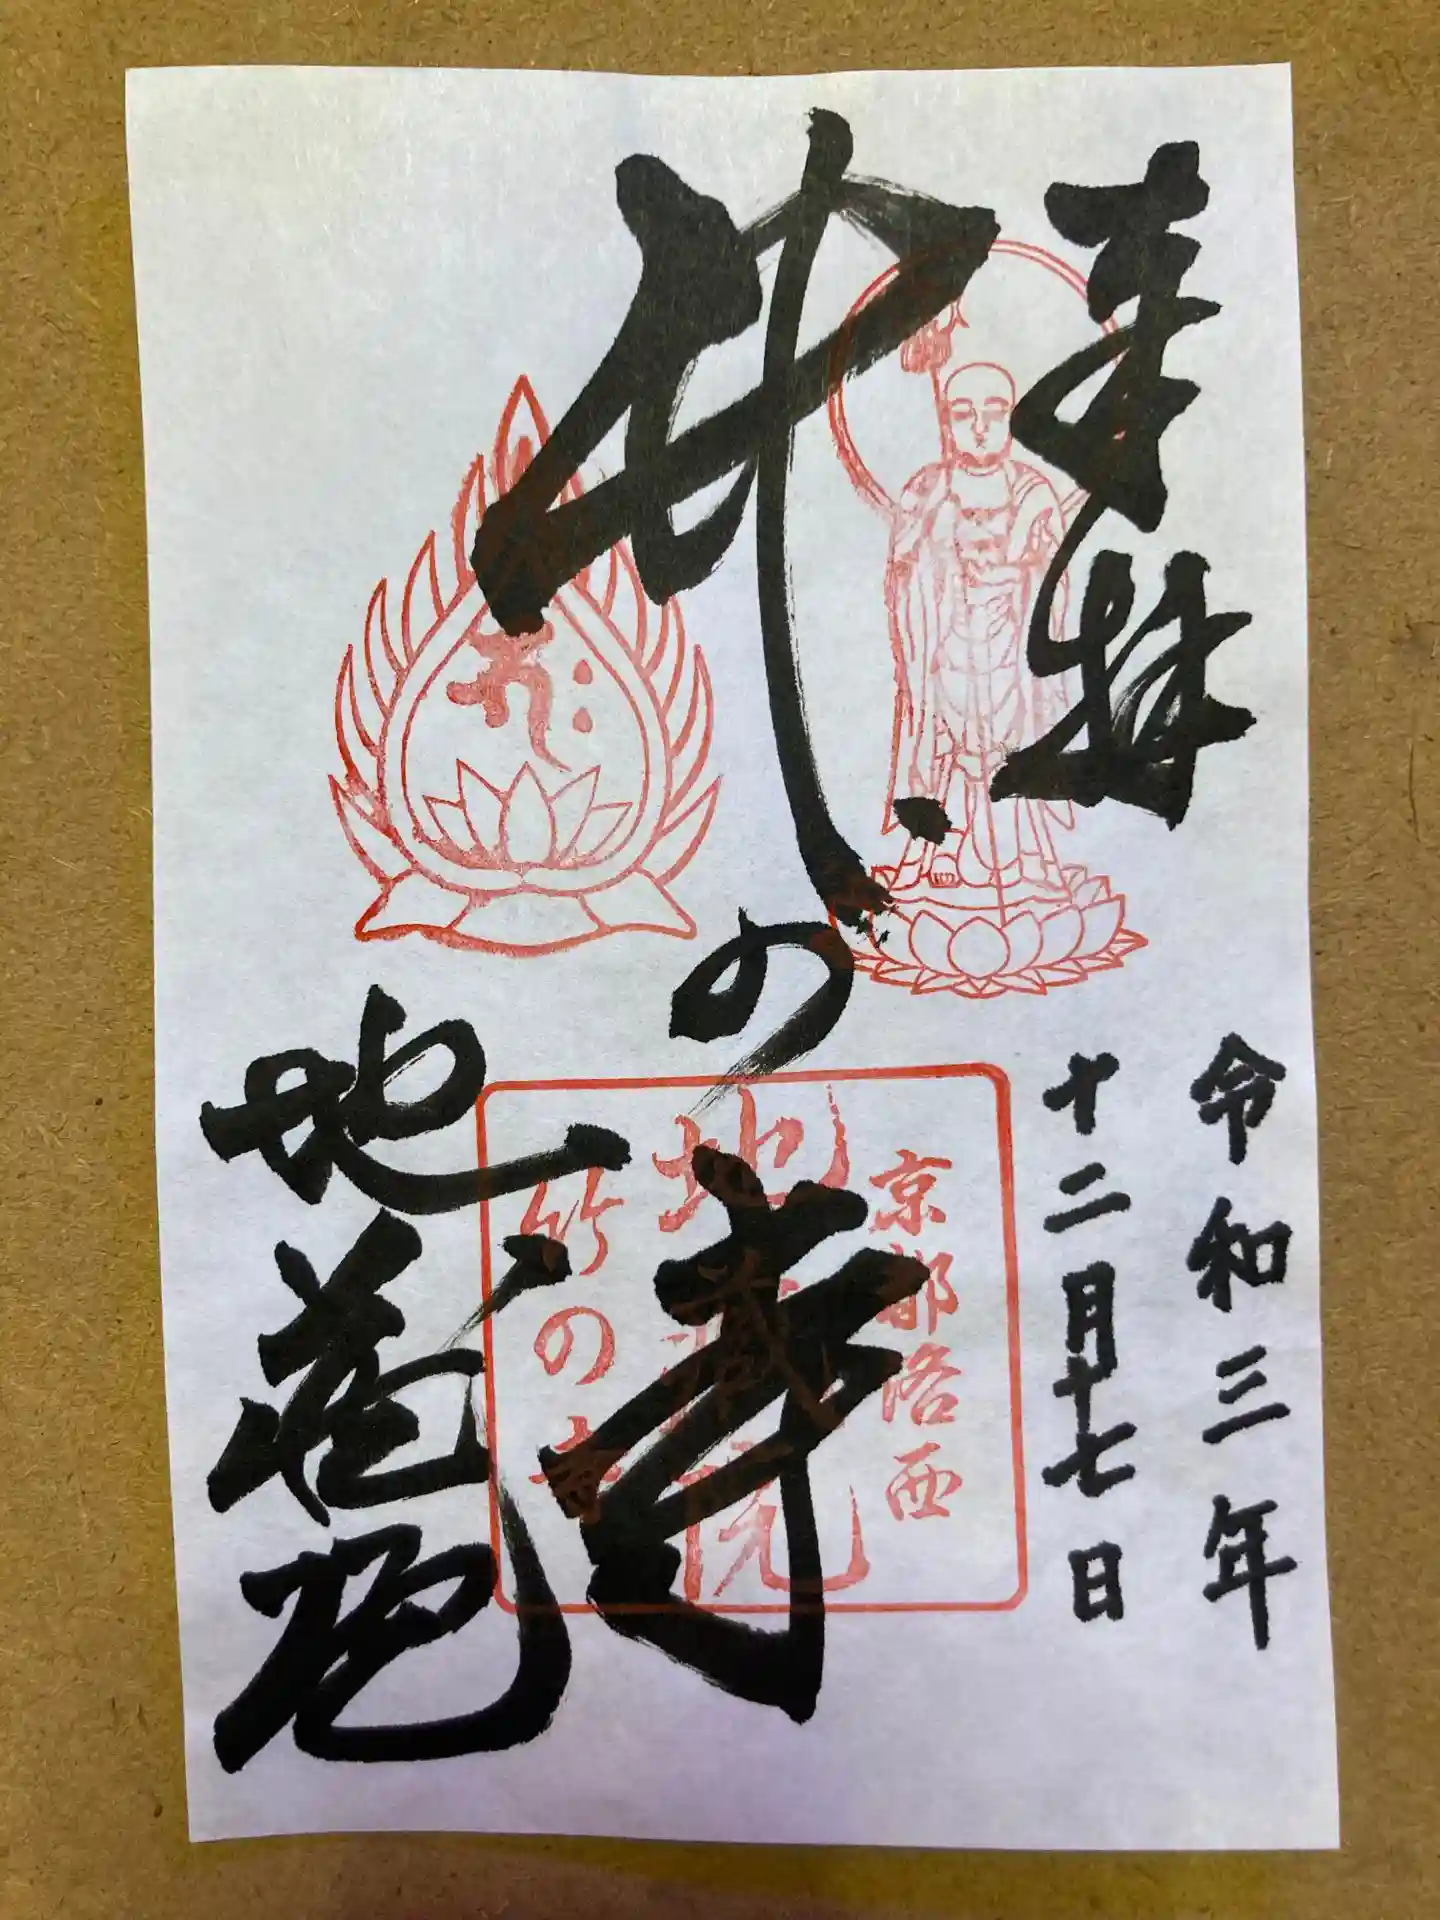 奉拝
令和三年
十二月十七日
竹の寺
地蔵院
京都洛西
地蔵院
竹の寺